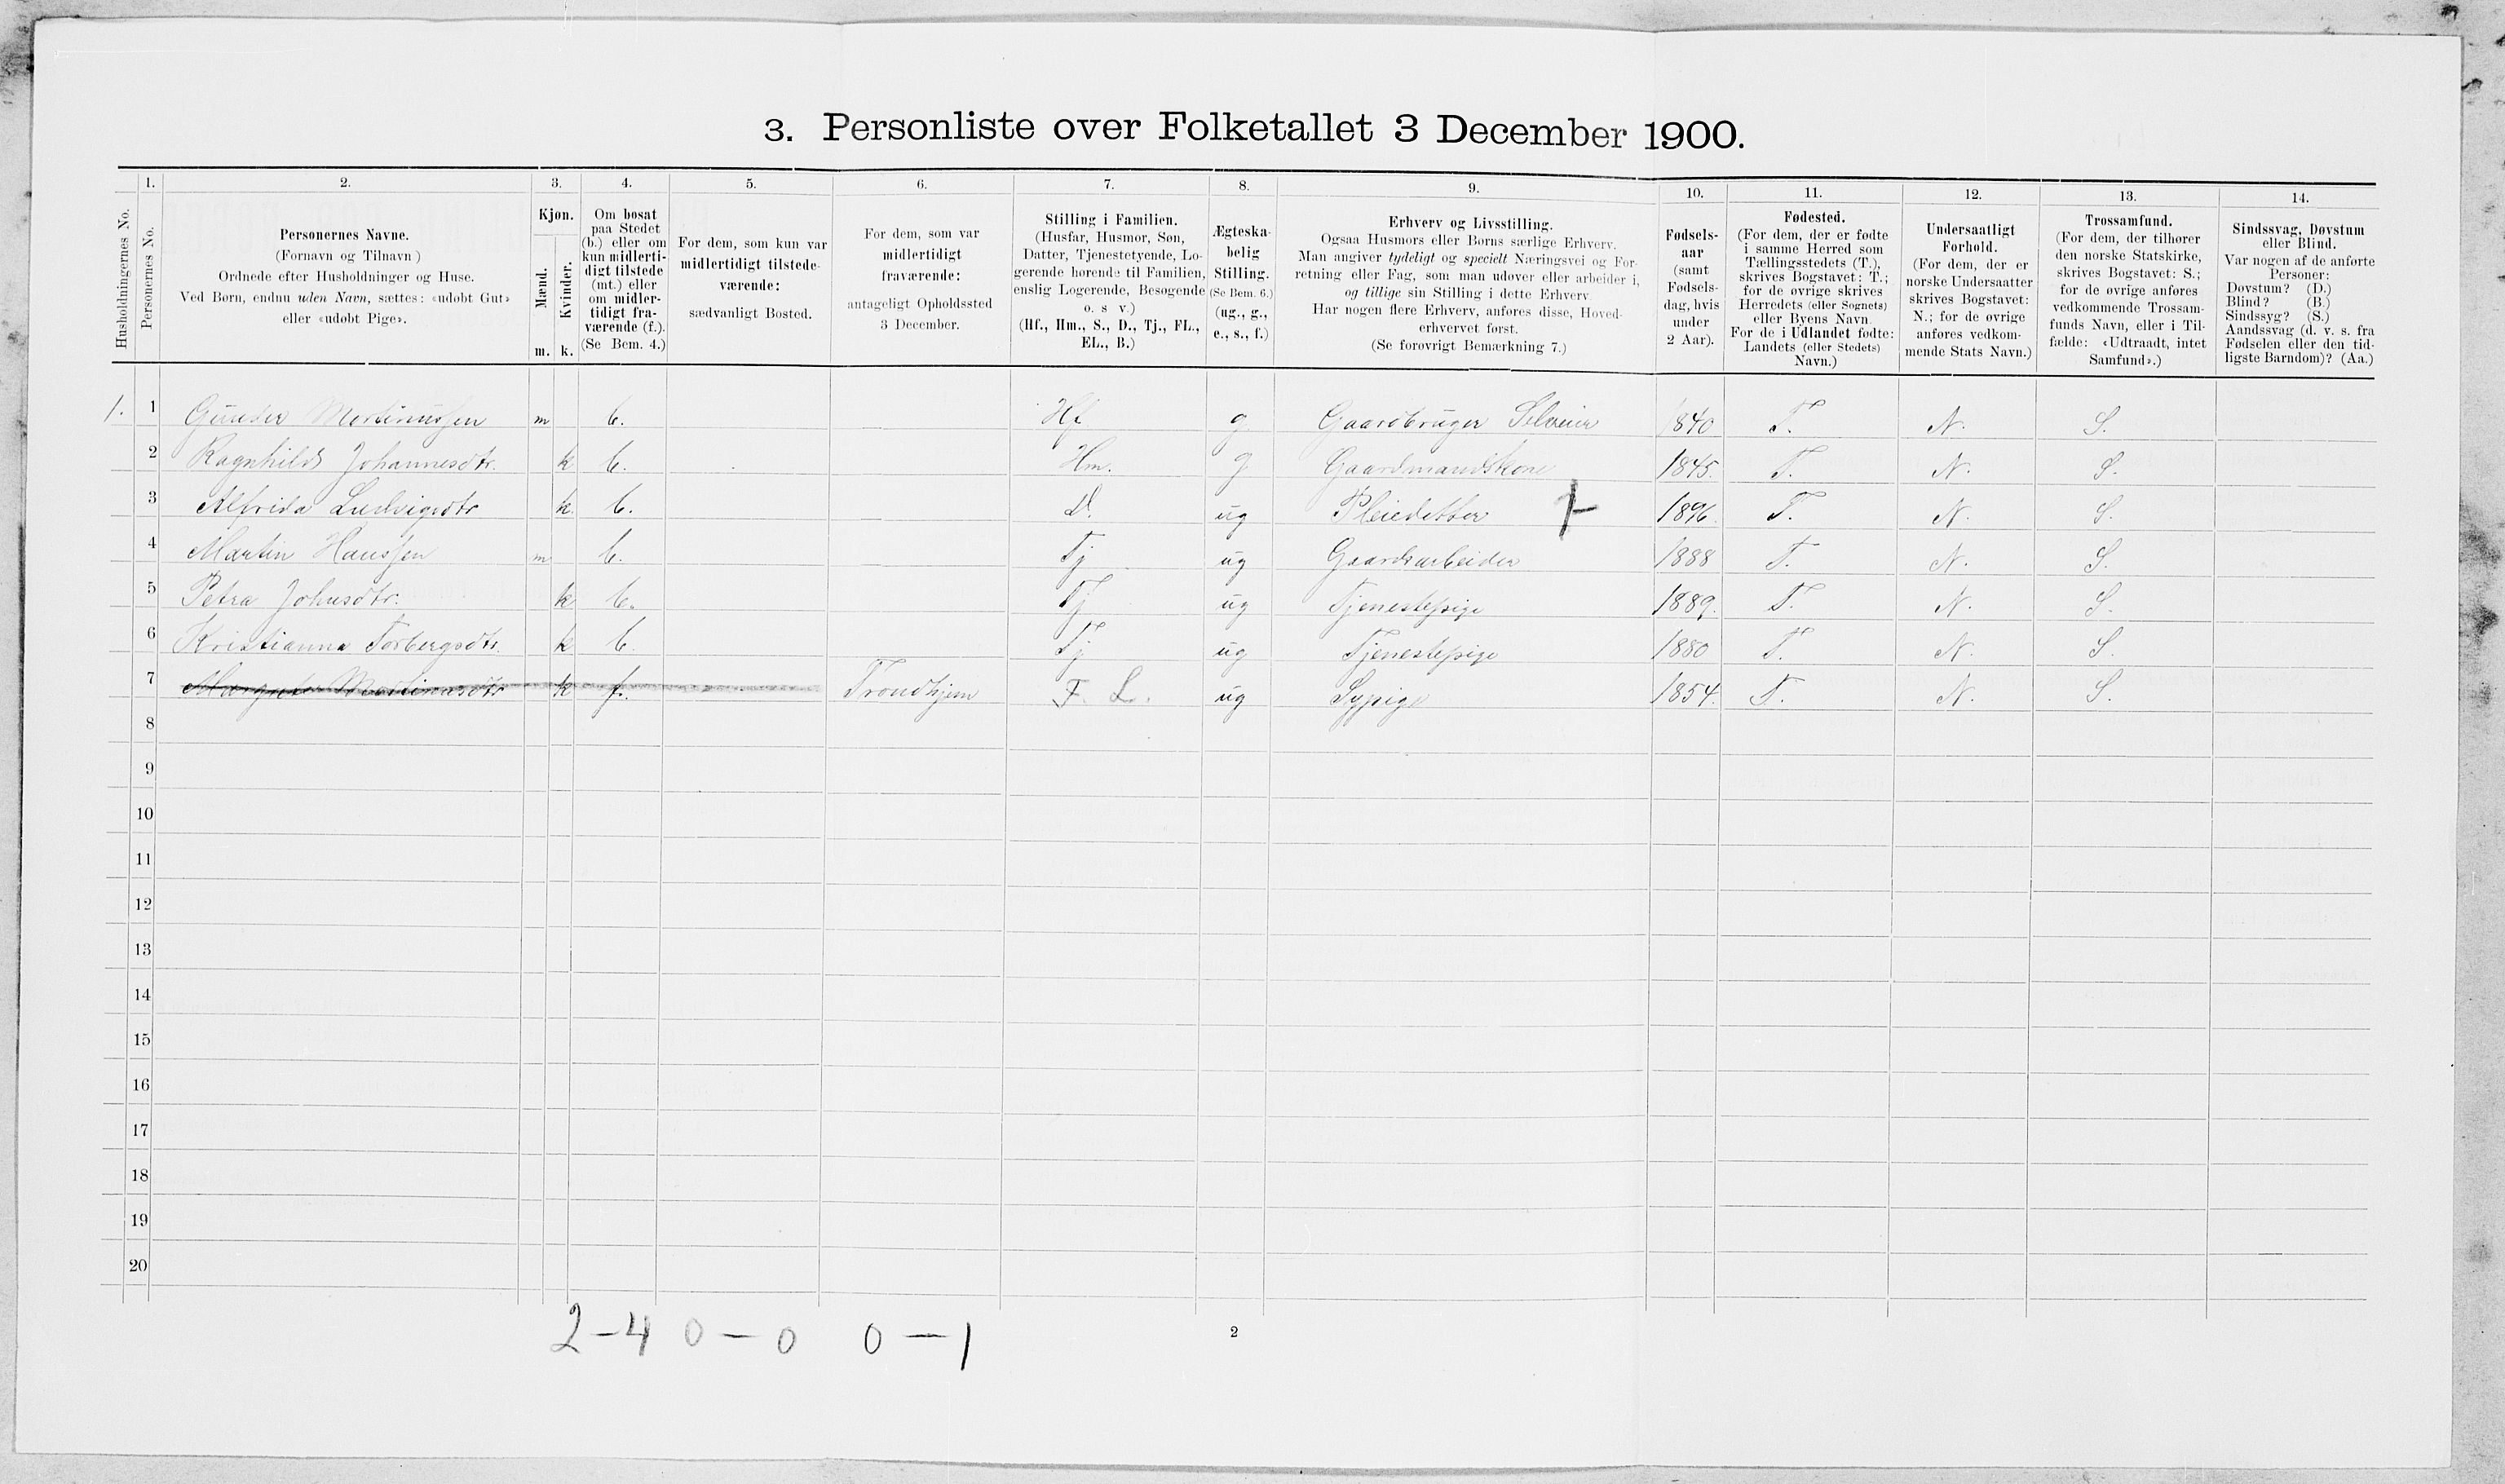 3. Personliste over Folketallet 3 December 1900.
1. 2. 3. 4. 5. 6. 7. 8. 9. 10. 11. 12. 13. 14.
Husholdningernes No.
Personernes No.
Personernes Navne.
(Fornavn og Tilnavn)
Ordnede efter Husholdninger og Huse.
Ved Børn, endnu uden Navn, sættes: «udøbt Gut»
eller «udøbt Pige».
Kjøn.
Mænd.
Kvinder.
m. k.
Om bosat
paa Stedet
(b.) eller om
kun midlerti-
digt tilstede
(mt.) eller
om midler-
tidigt fra-
værende (f.).
(Se Bem. 4.)
For dem, som kun var
midlertidigt tilstede-
værende:
sædvanligt Bosted.
For dem, som var
midlertidigt
fraværende:
antageligt Opholdssted
3 December.
Stilling i Familien.
(Husfar, Husmor, Søn,
Datter, Tjenestetyende, Lo-
gerende hørende til Familien,
enslig Logerende, Besøgende
o. s v.)
(Hf., Hm., S., D., Tj., FL.,
EL., B.)
Ægteska-
belig
Stilling.
(Se Bem. 6.)
(ug., g.,
e., s., f.)
Erhverv og Livsstilling.
Ogsaa Husmors eller Børns særlige Erhverv.
Man angiver tydeligt og specielt Næringsvei og For-
retning eller Fag, som man udøver eller arbeider i,
og tillige sin Stilling i dette Erhverv
Har nogen flere Erhverv, anføres disse, Hoved-
erhvervet først.
(Se forøvrigt Bemærkning 7.)
Fødsels-
aar
(samt
Fødsels-
dag, hvis
under
2 Aar).
Fødested.
(For dem, der er fødte
i samme Herred som
Tællingsstedets (T.),
skrives Bogstavet: T.;
for de øvrige skrives
Herredets (eller Sognets)
eller Byens Navn
For de i Udlandet fødte:
Landets (eller Stedets)
Navn.)
Undersaatligt
Forhold.
(For dem, der er
norske Undersaatter
skrives Bogstavet:
N.; for de øvrige
anføres vedkom-
mende Stats Navn.)
Trossamfund.
(For dem, der tilhører
den norske Statskirke,
skrives Bogstavet: S.;
for de øvrige anføres
vedkommende Trossam-
funds Navn, eller i Til-
fælde: «Udtraadt, intet
Samfund».)
Sindssvag, Døvstum
eller Blind.
Var nogen af de anførte
Personer:
Døvstum? (D.)
Blind? (B.)
Sindssyg? (S.)
Aandssvag (d. v. s. fra
Fødselen eller den tid-
ligste Barndom)? (Aa.)
1. 1 Gunder Mortinussen m b. Hf g Gaardbruger Selveier 1840 T. N. S.
2 Ragnhild Johannesdtr. k b. Hm. g Gaardmandskone 1845. T. N. S.
3 Alfrida Ludvigsdtr k. b. D. ug Pleiedatter 1896. T. N. S.
4 Martin Hanssen m b. Tj ug Gaardsarbeider 1888 T. N. S.
5 Petra Johnsdtr. k b. Tj ug Tjenestepige 1889. T. N. S.
6 Kristianna Torbergsdtr. k b. Tj ug Tjenestepige 1880 T. N. S.
7 Mortinusdtr k f. Trondhjem F. L. ug Sypige 1854. T. N. S.
8
9
10
11
12
13
14
15
16
17
18
19
20
2-4 0-0 0-1
2